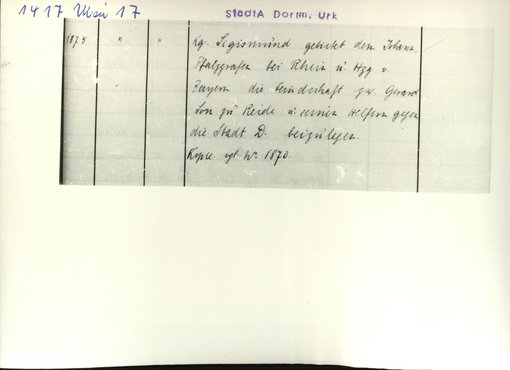 1417 Mai 17
StadtA Dortm. Urk
1875 " " Kg. Sigismund gebietet dem Johann,
Pfalzgrafen bei Rhein u. Hzg v.
Bayern die Feindschaft zw. Gerard
Son zu Heide u. seinen Helfern gegen
die Stadt D. beizulegen.
Kopie. vgl. Nr. 1870.